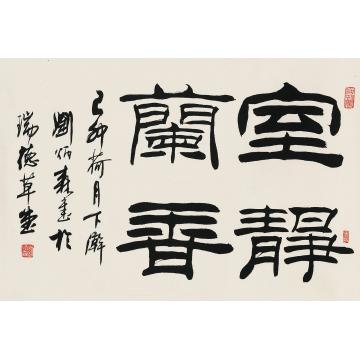 室靜
蘭香
己卯荷月下澣
劉炳森書於
瑞德草堂